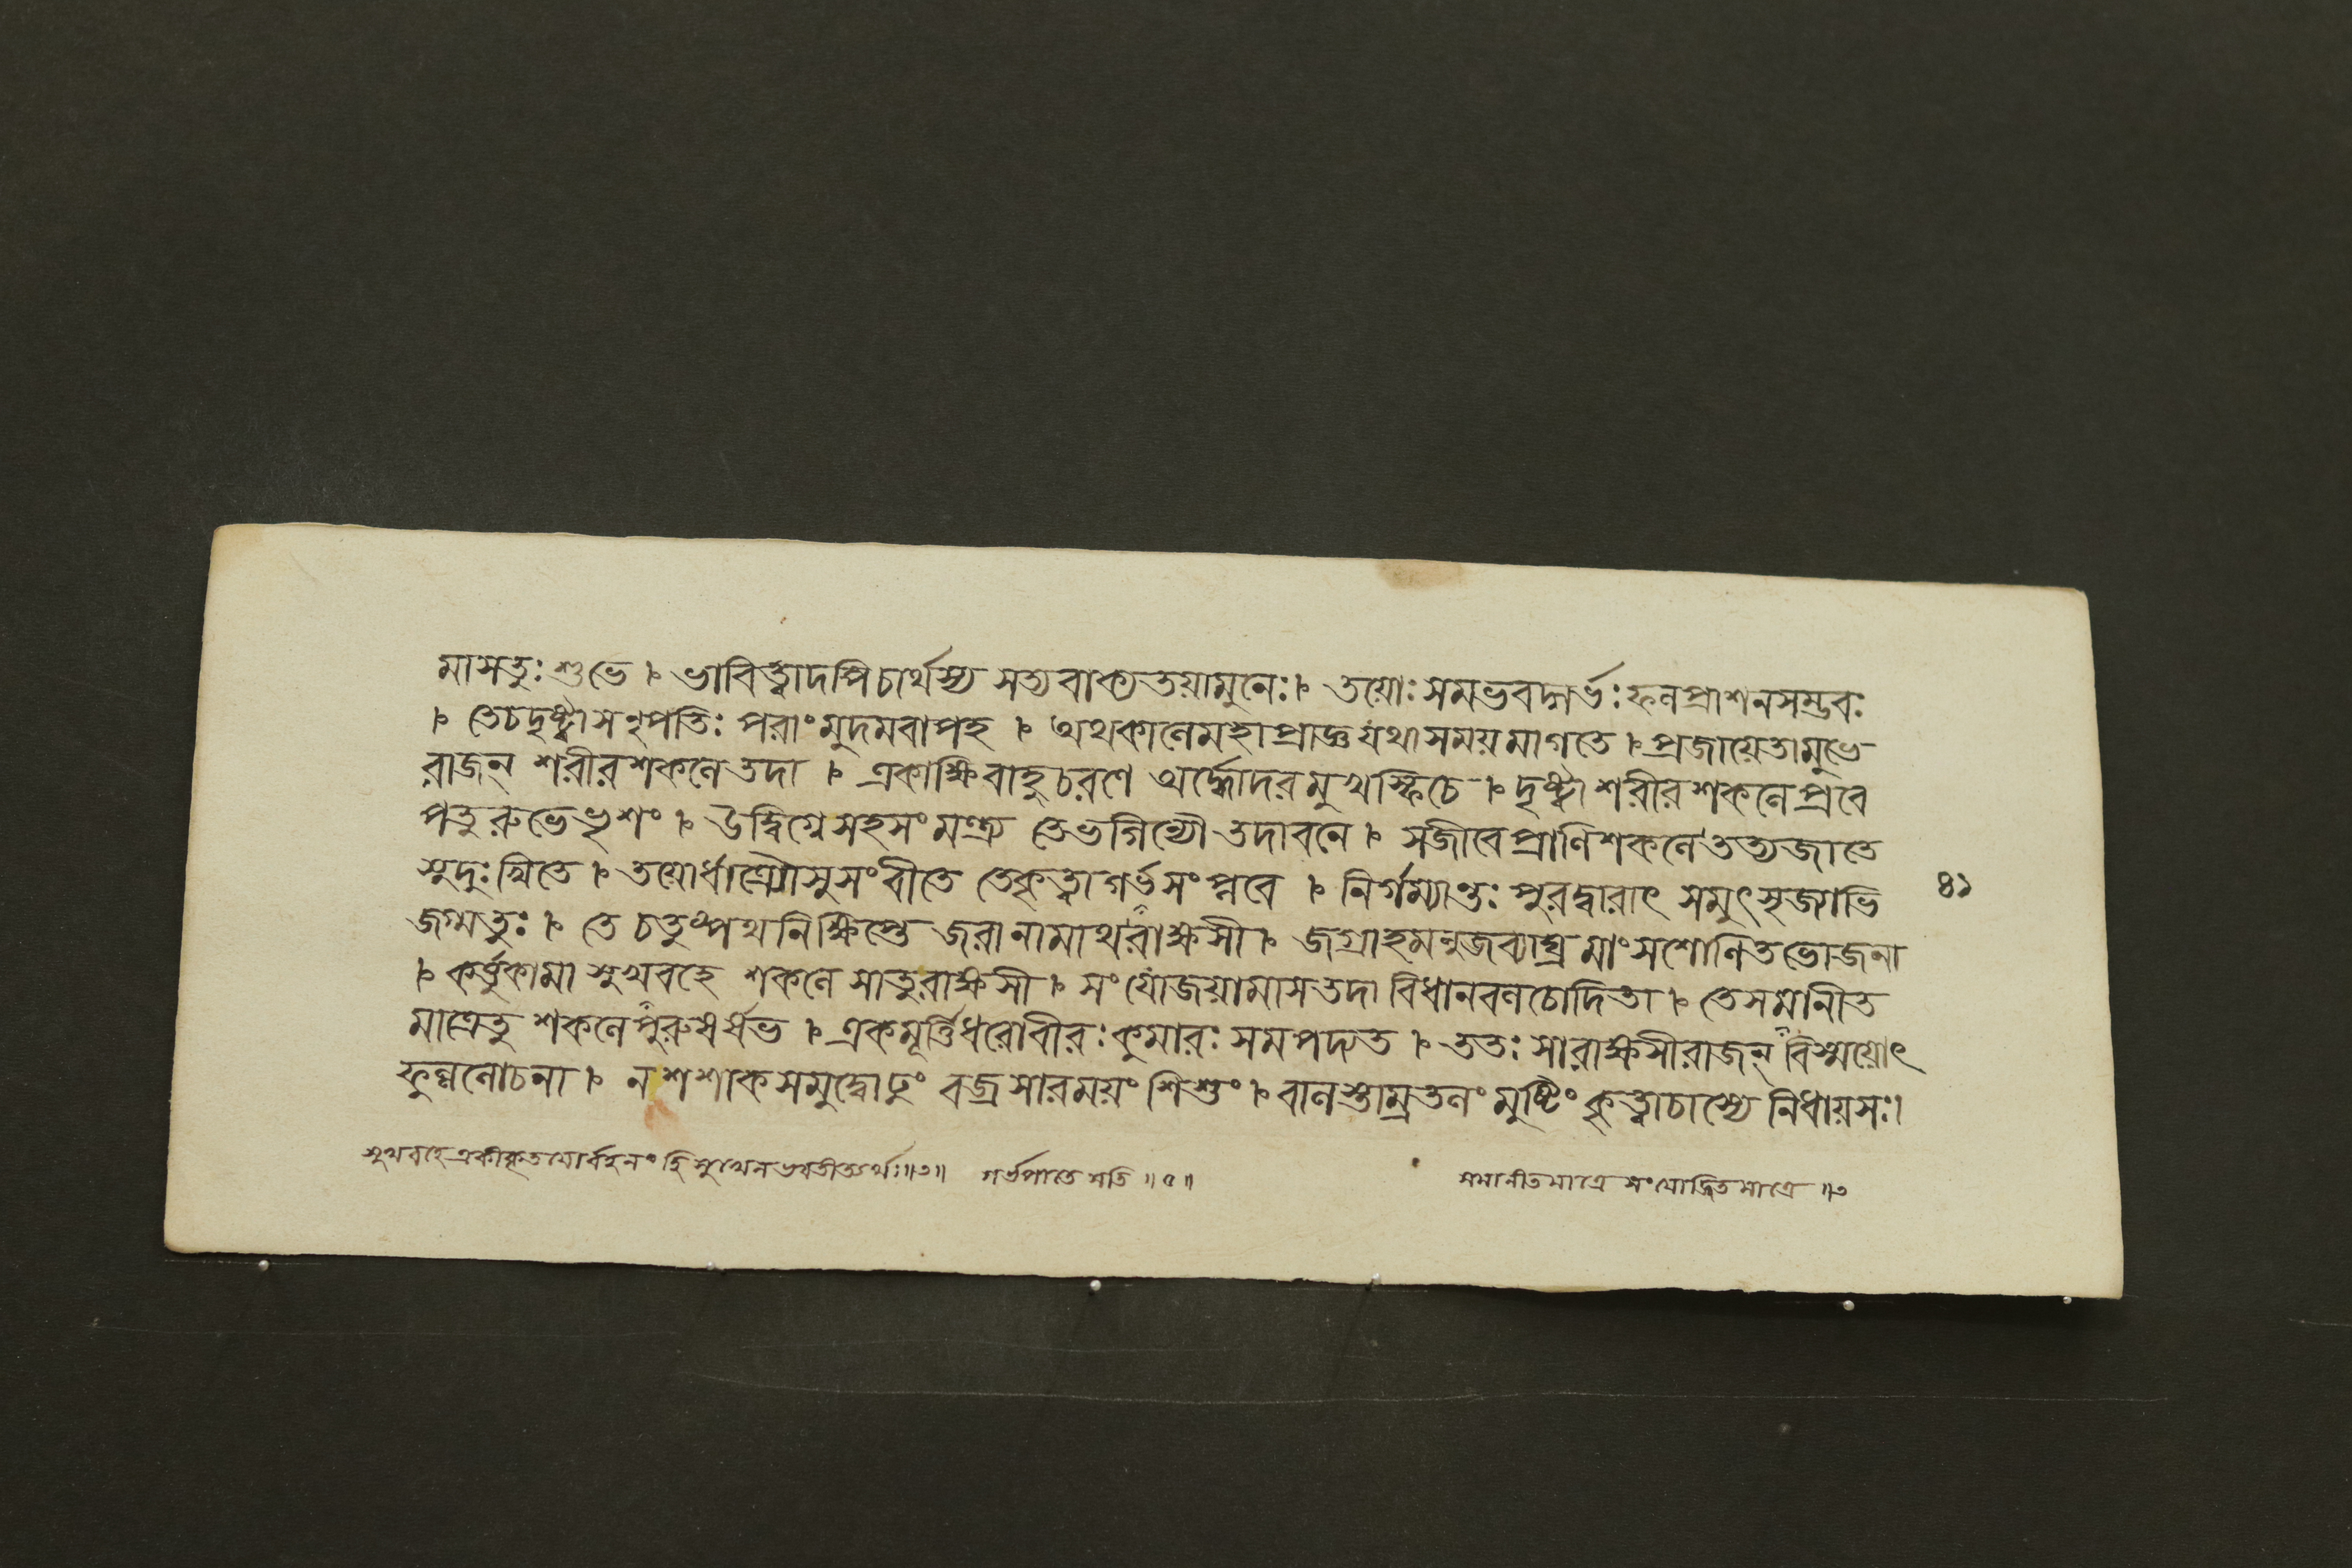 মাসতুঃ শুভে । ভাবিত্বাদপিচার্থস্য সত্যবাক্যতয়ামুনেঃ । তয়োঃ সমভবদ্গর্ভঃ ফলপ্রাশনসম্ভবঃ
। তেচদৃষ্ট্বাসনৃপতিঃ পরাংমুদমবাপহ । অথকালেমহাপ্রাজ্ঞ যথাসময়মাগতে । প্রজায়েতামুভে
রাজন্ শরীরশকলে তদা । একাক্ষিবাহুচরণে অর্দ্ধোদরমুখস্ফিচে । দৃষ্ট্বা শরীরশকলে প্রবে
পতুরুভেভৃশং । উদ্বিগ্নেসহসংমন্ত্র্য তেভগিন্যৌ তদাবলে । সজীবেপ্রাণিশকলে তত্যজাতে
সুদুঃখিতে । তয়োর্ধাত্র্যৌসুসংবীতে তেকৃত্বাগর্ভসংপ্লবে । নির্গম্যান্তঃ পুরদ্বারাৎ সমুৎসৃজ্যাভি
জগ্মতুঃ । তে চতুষ্পথনিক্ষিপ্তে জরানামাথরাক্ষসী । জগ্রাহমনুজব্যাঘ্র মাংসশোণিতভোজনা
। কর্ত্তুকামা সুখবহে শকলে সাতুরাক্ষসী । সংযোজয়ামাসতদা বিধানবলচোদিতা । তেসমানীত
মাত্রেতু শকলেপুরুষর্ষভ । একমূর্ত্তিধরোবীরঃ কুমারঃ সমপদ্যত । ততঃ সারাক্ষসীরাজন্ বিস্ময়োৎ
ফুল্ললোচনা । ন শশাকসমুদ্বোঢুং বজ্রসারময়ং শিশুং । বালস্তাম্রতলং মুষ্টিং কৃত্বাচাস্যে নিধায়সঃ।
৪১
সুখবহে একীকৃতয়োর্বহনং হি সুখেন ভবতীত্যর্থঃ॥৩॥ গর্ভপাতে সতি ॥৫॥
সমানীতমাত্রে সংযোজিতমাত্রে ॥৩